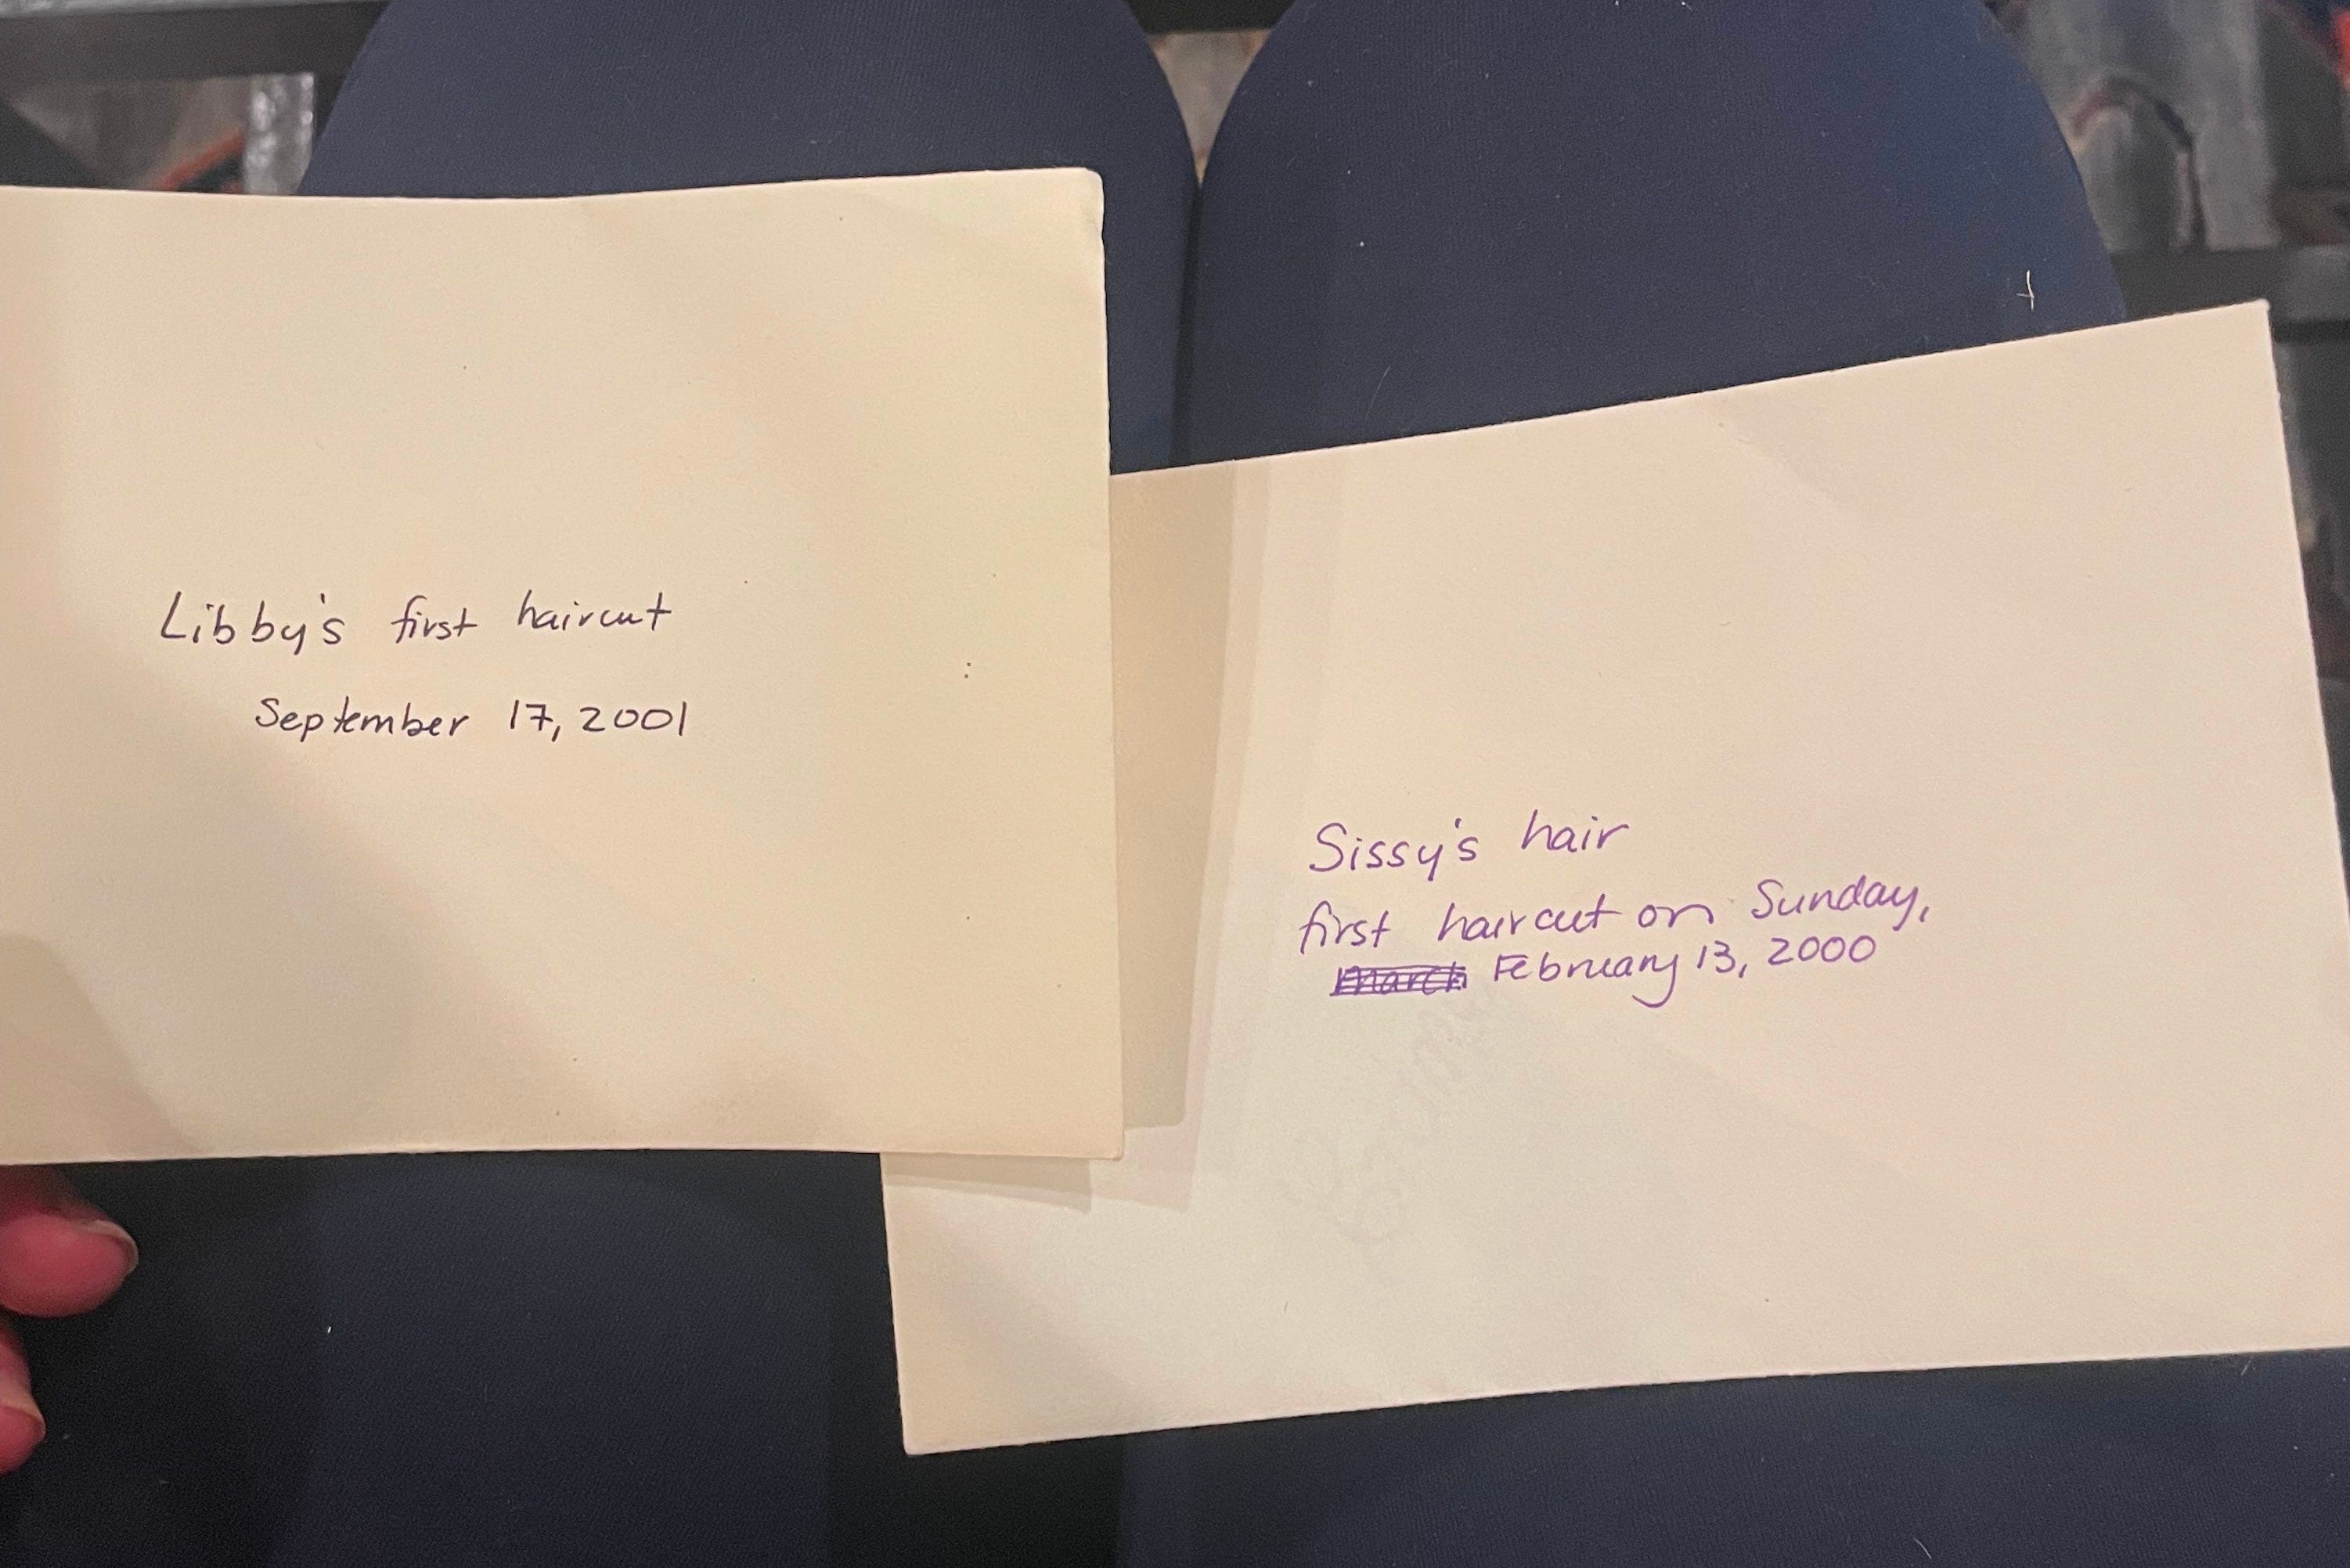 Libby's first haircut
September 17, 2001
Sissy's hair
first haircut on Sunday,
March February 13, 2000